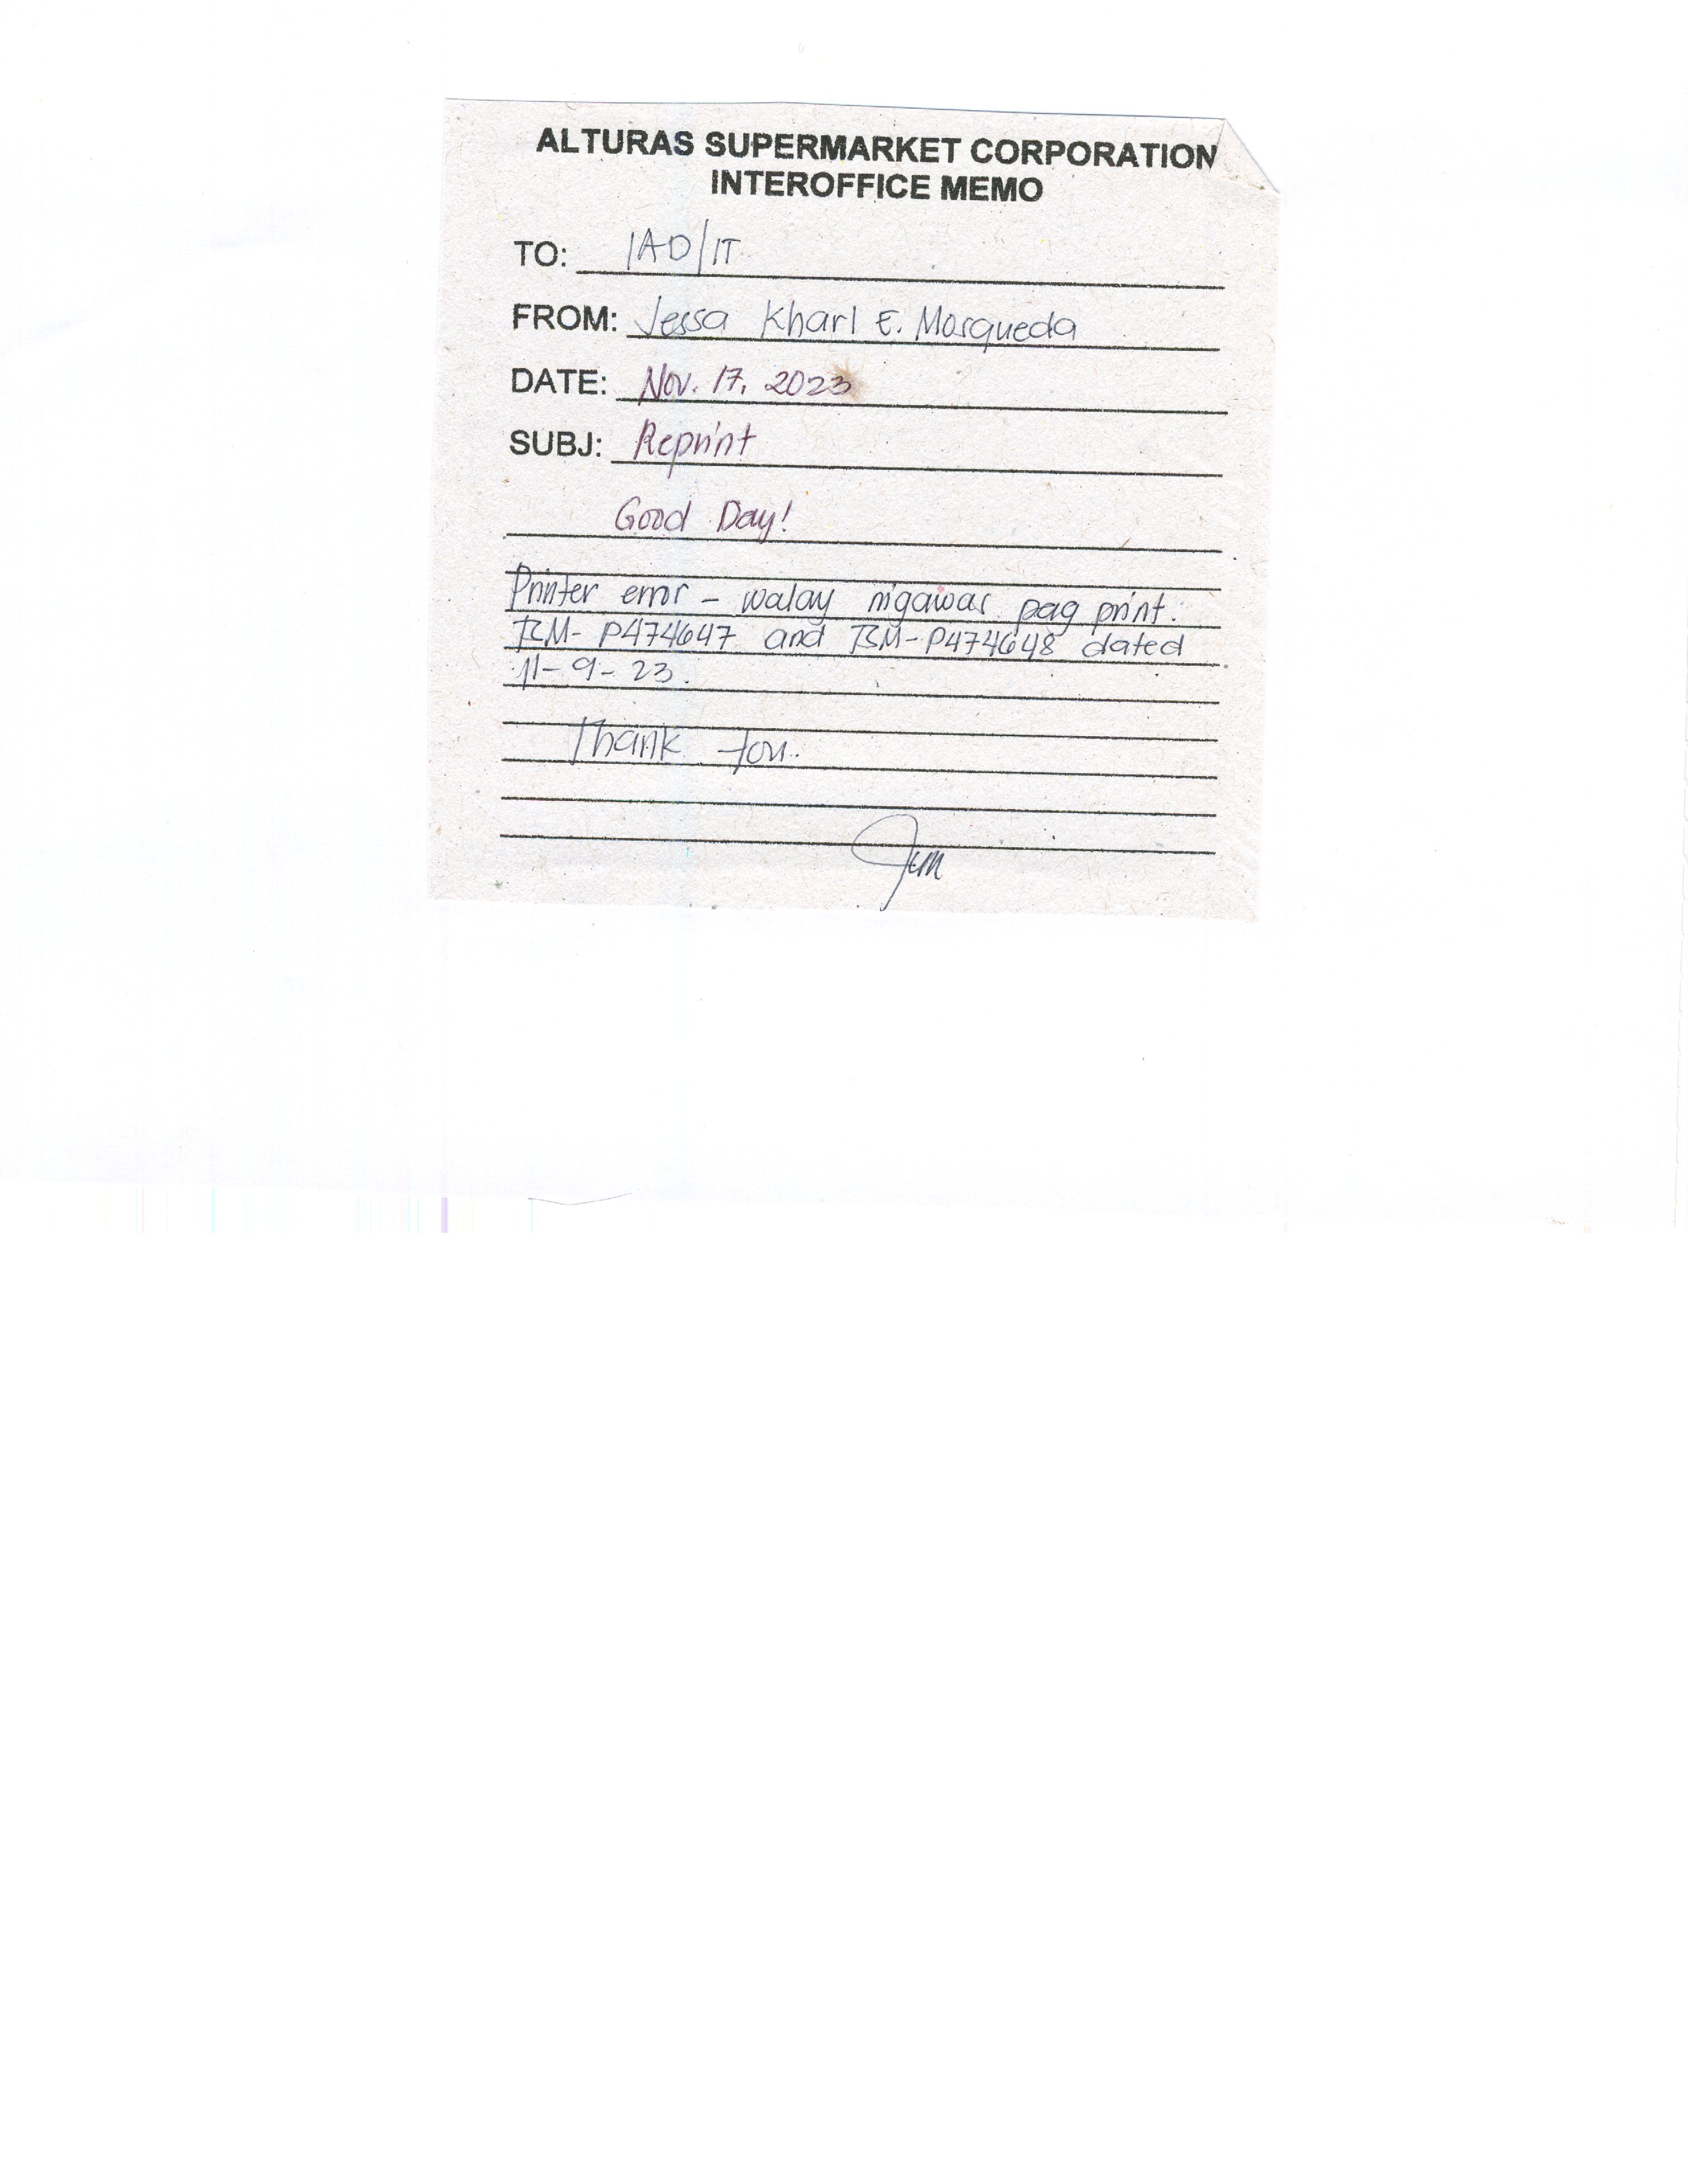 ALTURAS SUPERMARKET CORPORATION
INTEROFFICE MEMO
TO: IAD/IT
FROM: Jessa Kharl E. Mosqueda
DATE: Nov. 17, 2023
SUBJ: Reprint
Good Day!
Printer error - walay nigawas pag print.
BM- P474647 and BM-P474648 dated
11-9-23.
Thank You.